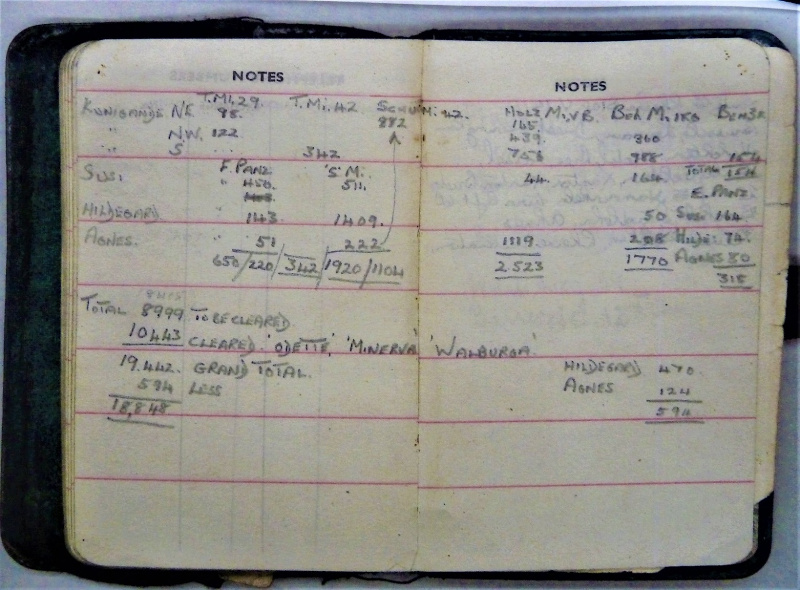 NOTES
T.Mi.29. T.Mi.42 SCHU Mi.42.
KUNIGANDE NE 98. 882
" N.W. 122
" S ... 342
SUSI F. PANZ 'S' Mi.
" 450. 511.
HILDEGARD 143. 1409.
AGNES. " 51 222
650/220/342/1920/1104
TOTAL 8999 TO BE CLEARED
10443 CLEARED. 'ODETTE', 'MINERVA' 'WALBURGA'
19.442. GRAND TOTAL.
594 LESS
18,848
NOTES
HOLZ Mi.VB.
145.
439. 360
756 988 154
44. 164 TOTAL 154
E. PANZ.
50 SUSI 164
1119 208 HILDE: 74.
2523 1770 AGNES 80
318
HILDEGARD 470.
AGNES 124
594